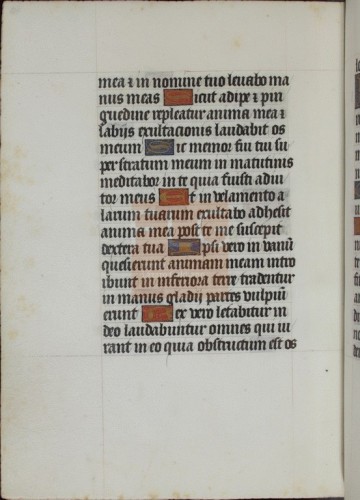 mea ⁊ in nomine tuo levabo ma
nus meas Sicut adipe ⁊ pin
guedine repleatur anima mea ⁊
labijs exultacionis laudabit os
meum Sic memor fui tui su
per stratum meum in matutinis
meditabor in te quia fuisti adiu
tor meus Et in velamento a
larum tuarum exultabo adhesit
anima mea post te me suscepit
dextera tua Ipsi vero in vanū
quesierunt animam meam intro
ibunt in inferiora terre tradentur
in manus gladij partes vulpiū
erunt Rex vero letabitur in
deo laudabuntur omnes qui iu
rant in eo quia obstructum est os